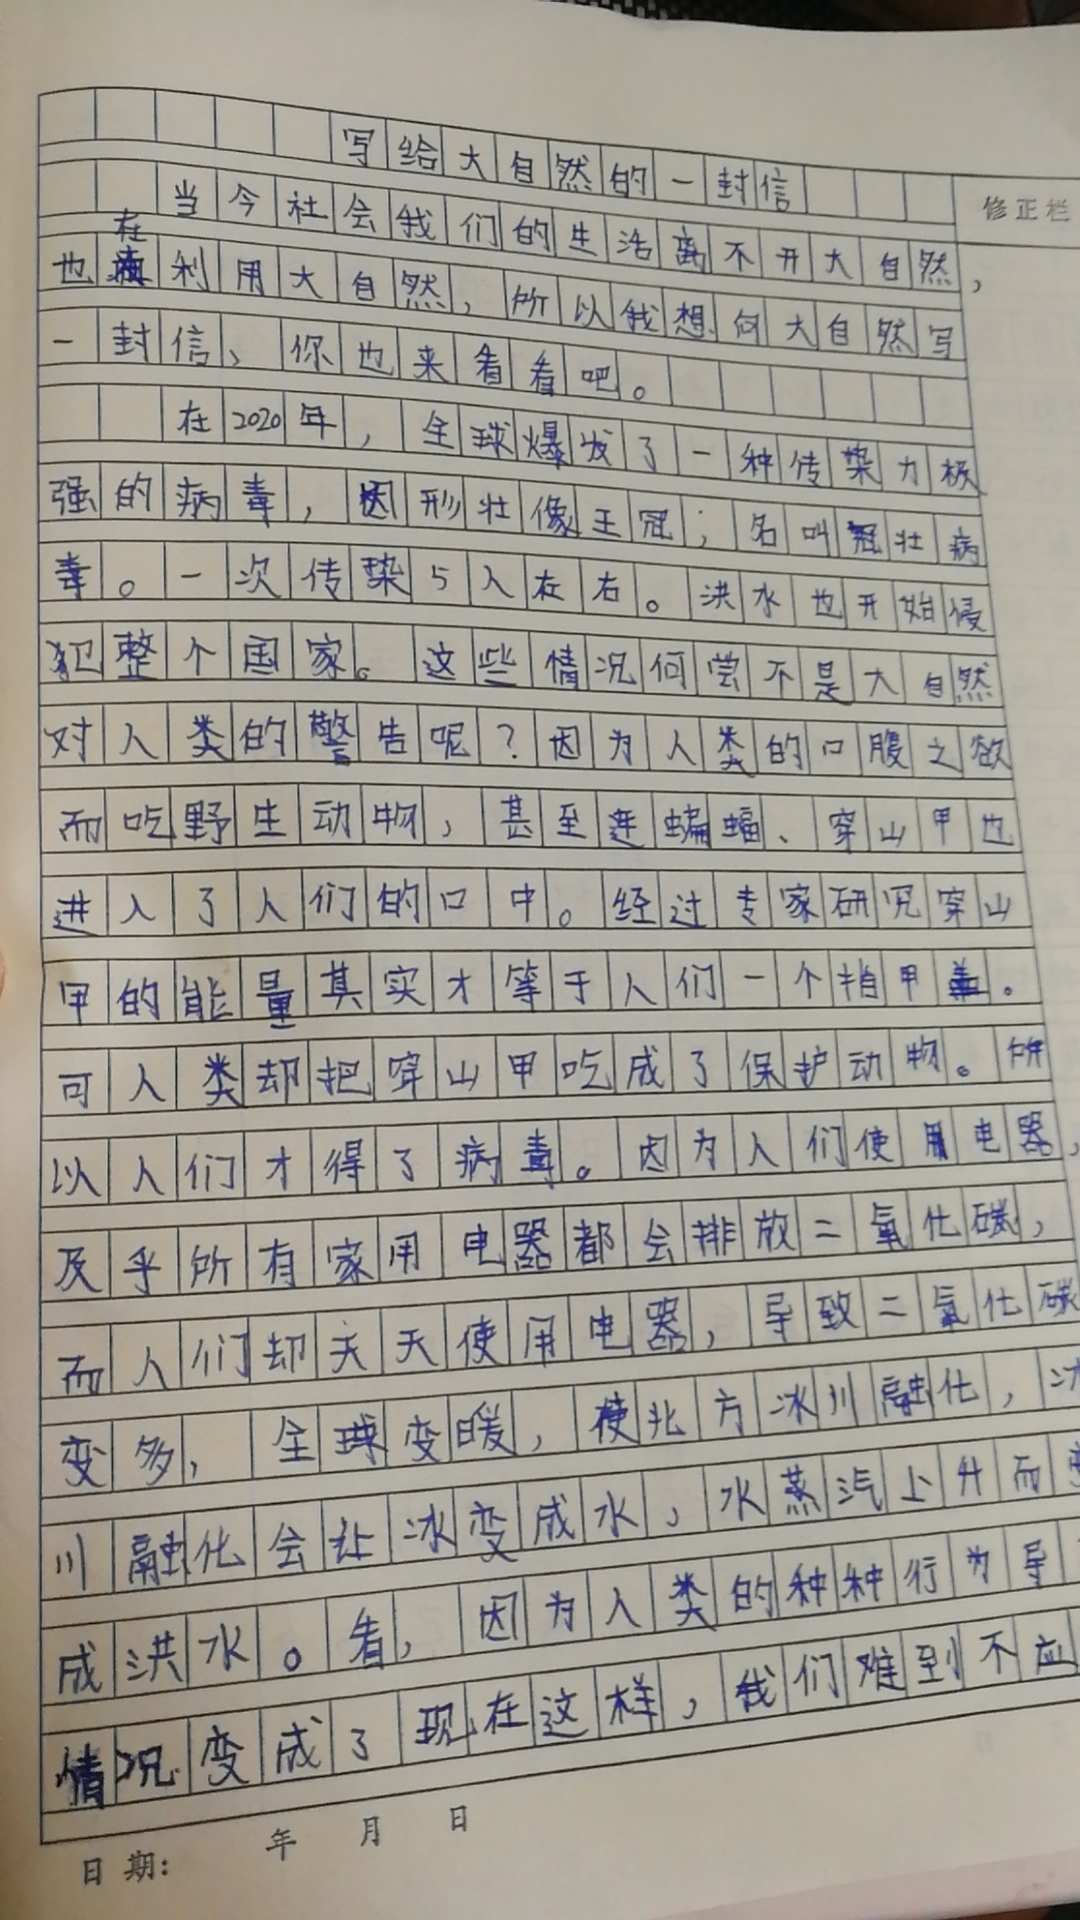 写给大自然的一封信
修正栏
当今社会我们的生活离不开大自然，
也在利用大自然，所以我想向大自然写
一封信，你也来看看吧。
在2020年，全球爆发了一种传染力极
强的病毒，因形壮像王冠；名叫冠壮病
毒。一次传染5人在右。洪水也开始侵
犯整个国家。这些情况何尝不是大自然
对人类的警告呢？因为人类的口腹之欲
而吃野生动物，甚至连蝙蝠、穿山甲也
进入了人们的口中。经过专家研究穿山
甲的能量其实才等于人们一个指甲盖。
可人类却把穿山甲吃成了保护动物。所
以人们才得了病毒。因为人们使用电器，
及乎所有家用电器都会排放二氧化碳，
而人们却天天使用电器，导致二氧化碳
变多，全球变暖，使北方冰川融化，冰
川融化会让冰变成水，水蒸汽上升而
成洪水。看，因为人类的种种行为导
情况变成了现在这样，我们难到不应
日期： 年 月 日